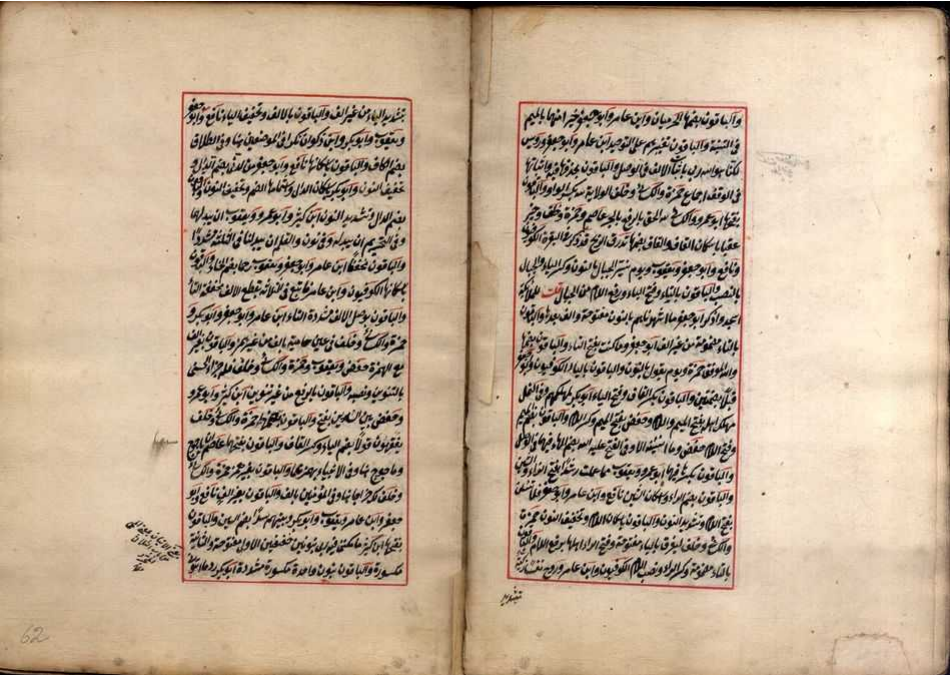 والباقون بضمها الحرميان وابن عامر وابو جعفر خيرا منهما بالميم
في التثنية والباقون بغير ميم على التوحيد ابن عامر وابو جعفر ورويس
لكنا هو الله ربي باثبات الالف في الوصل والباقون بحذفها فيه واثباتها
في الوقف اجماع حمزة والكسائي وخلف الولاية بكسر الواو والباقون
بفتحها ابو عمرو والكسائي لله الحق بالرفع بالجر عاصم وحمزة وخلف وخير
عقبا باسكان القاف بضمها تذروه الريح قد ذكر في البقرة الكوفيون
ونافع وابو جعفر ويعقوب ويوم نسير الجبال بالنون وكسر الياء والجبال
بالنصب والباقون بالتاء وفتح الياء ورفع اللام من الجبال قلت للملائكة
اسجدوا ذكر ابو جعفر ما اشهدناهم بالنون مفتوحة والف بعدها والباقون
بالتاء مضمومة من غير الف ابو جعفر وما كنت بفتح التاء والباقون بضمها
والله الموفق حمزة ويوم يقول بالنون والباقون بالياء الكوفيون وابو جعفر
قبلا بضمتين والباقون بكسر القاف وفتح الباء ابو بكر لمهلكهم وفي النمل
مهلك اهله بفتح الميم واللام وحفص بفتح الميم وكسر اللام والباقون بضم الميم
وفتح اللام حفص وما انسانيه الا وفي الفتح عليه الله بضم الهاء فيهما في الوصل
والباقون بكسرها فيهما ابو عمرو ويعقوب مما علمت رشدا بفتح الراء والشين
والباقون بضم الراء واسكان الشين نافع وابن عامر وابو جعفر فلا تسئلني
بفتح اللام وتشديد النون والباقون باسكان اللام وتخفيف النون حمزة
والكسائي وخلف ليغرق بالياء مفتوحة وفتح الراء اهلها برفع اللام والباقون
بالتاء مضمومة وكسر الراء ونصب اللام الكوفيون وابن عامر وروح نفسا زكية
بتشديد
بتشديد الياء من غير الف والباقون بالالف وتخفيف الياء نافع وابو جعفر
ويعقوب وابو بكر وابن ذكوان نكرا في الموضعين هنا وفي الطلاق
بضم الكاف والباقون باسكانها نافع وابو جعفر من لدني بضم الدال و
تخفيف النون وابو بكر باسكان الدال واشمامها الضم وتخفيف النون والباقون
بضم الدال وتشديد النون ابن كثير وابو عمرو ويعقوب ان يبدلهما
وفي التحريم ان يبدله وفي نون والقلم ان يبدلنا في الثلثة مشددا
والباقون مخففا ابن عامر وابو جعفر ويعقوب رحما بضم الحاء والباقون
باسكانها الكوفيون وابن عامر فاتبع في الثلاثة بقطع الالف مخففة التاء
والباقون بوصل الالف مشددة التاء ابن عامر وابو جعفر وابو بكر و
حمزة والكسائي وخلف في عين حامية بالف من غير همز والباقون بغير الف
مع الهمزة حفص ويعقوب وحمزة والكسائي وخلف فله جزاء الحسنى
بالتنوين ونصبه والباقون بالرفع من غير تنوين ابن كثير وابو عمرو
وحفص بين السدين بفتح والباقون بضمها حمزة والكسائي وخلف
يفقهون قولا بضم الياء وكسر القاف والباقون بفتحها عاصم ياجوج
وماجوج هنا وفي الانبياء بهمزهما والباقون بغير همز حمزة والكسائي
وخلف خراجا هنا وفي المؤمنين بالف والباقون بغير الف نافع وابو
جعفر وابن عامر ويعقوب وابو بكر وبينهم سدا بضم السين والباقون
بفتحها ابن كثير ما مكنني فيه ربي بنونين خفيفتين الاولى مفتوحة والثانية
مكسورة والباقون بنون واحدة مكسورة مشددة ابو بكر ردما ائتوني
62